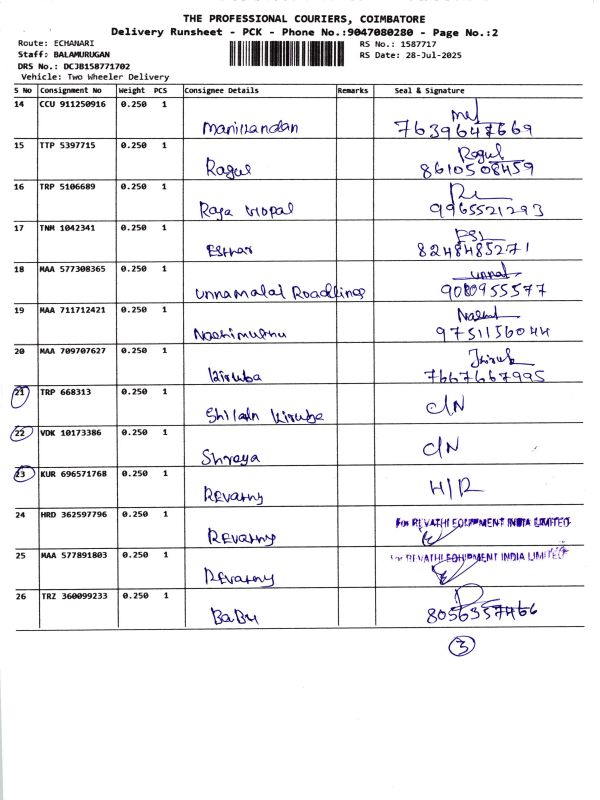 THE PROFESSIONAL COURIERS, COIMBATORE
Delivery Runsheet - PCK - Phone No.:9047080280 - Page No.:2
Route: ECHANARI
RS No.: 1587717
Staff: BALAMURUGAN
RS Date: 28-Jul-2025
DRS No.: DCJB158771702
Vehicle: Two Wheeler Delivery
S No Consignment No Weight PCS Consignee Details Remarks Seal & Signature
14 CCU 911250916 0.250 1
Manikandan 7639647669
15 TTP 5397715 0.250 1
Ragul
Ragul 8610508459
16 TRP 5106689 0.250 1
Raja Gopal 9965521293
17 TNM 1042341 0.250 1
Esthar 8248485271
18 MAA 577308365 0.250 1
Unnamalai Roadlines
19 MAA 711712421 0.250 1
Nachimuthu 9751156044
20 MAA 709707627 0.250 1
Kiruba 7667667995
21 TRP 668313 0.250 1
Kiruba C/N
22 VDK 10173386 0.250 1
Shreya C/N
23 KUR 696571768 0.250 1
Revathy H/R
24 HRD 362597796 0.250 1
For REVATHI EQUIPMENT INDIA LIMITED
Revathy
25 MAA 577891803 0.250 1
For REVATHI EQUIPMENT INDIA LIMITED
Revathy
26 TRZ 360099233 0.250 1
Babu
3